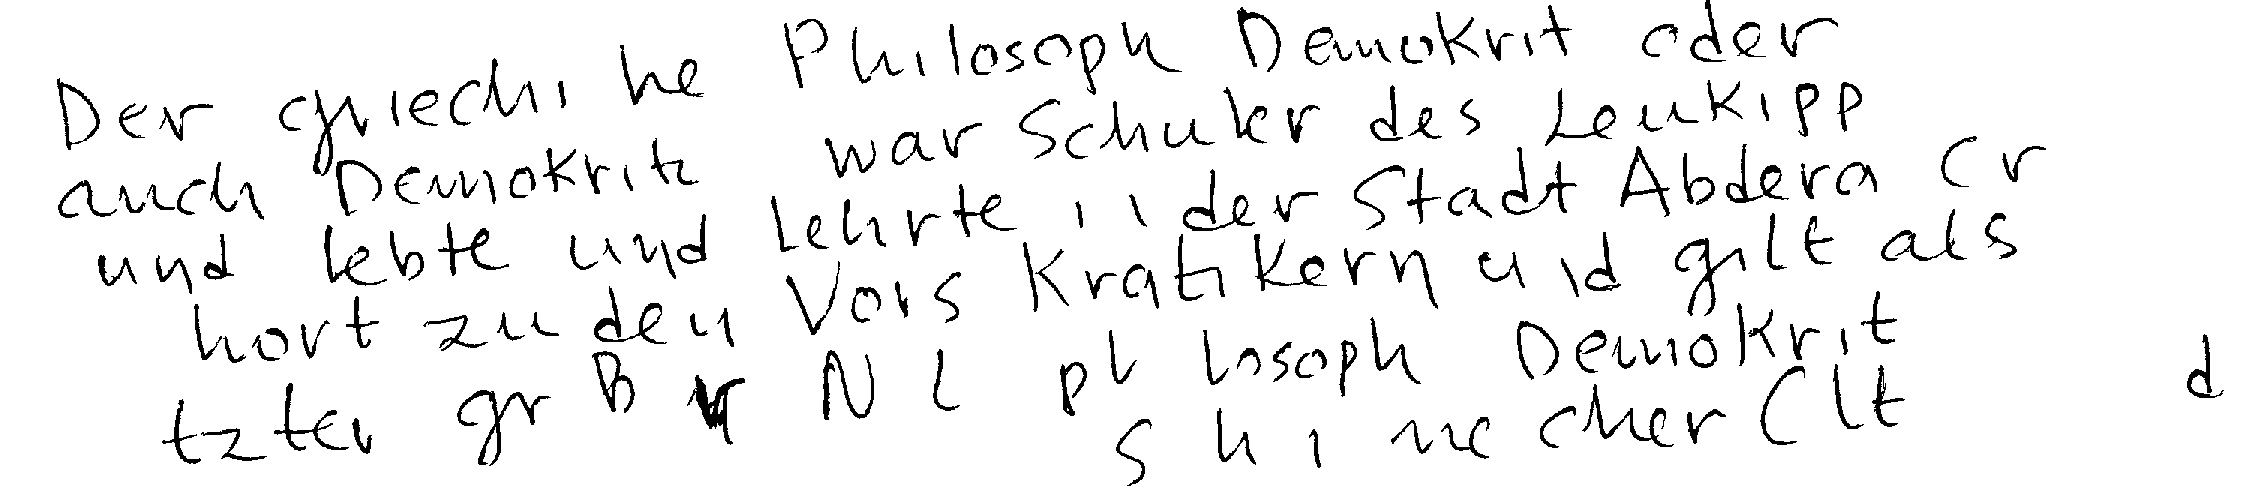 Der griechi he Philosoph Demokrit oder
auch Demokrit war Schuler des Leukipp
und lebte und lehrte der Stadt Abdera Er
hort zu den Vors kratikern und gilt als
tzter gr B r N l ph losoph Demokrit
cher d